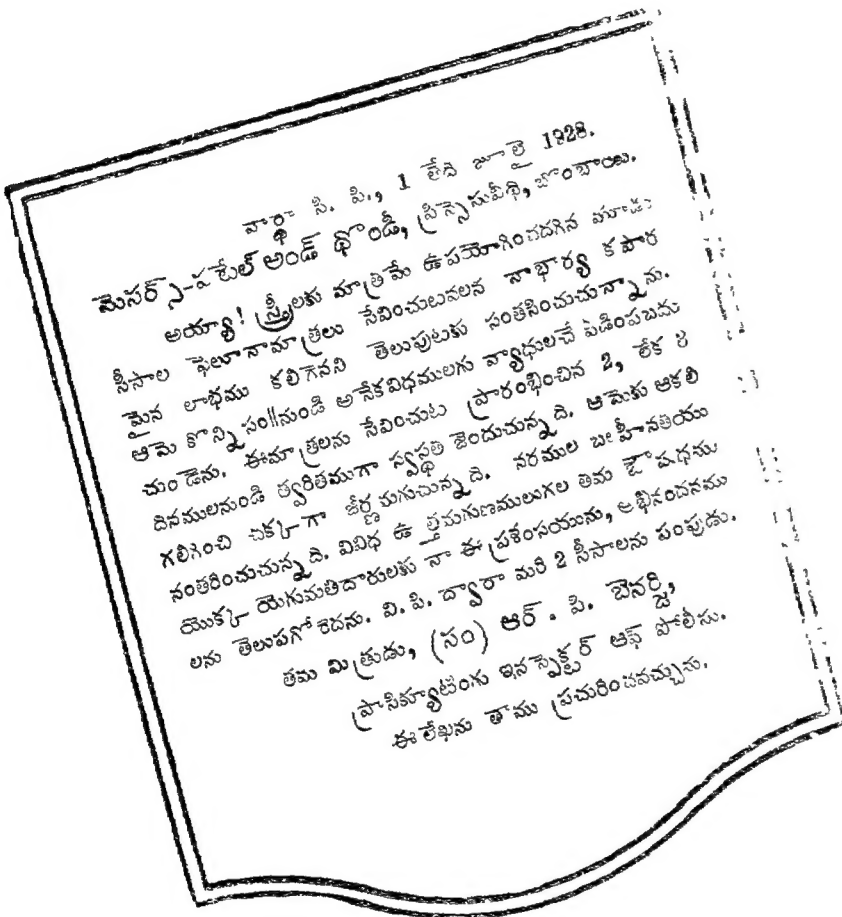 వార్ధా సి. పి., 1 తేది జూలై 1928.
మెసర్స్-పటేల్ అండ్ ధోండీ, ప్రిన్సెసువీథి, బొంబాయి.
అయ్యా! స్త్రీలకు మాత్రమే ఉపయోగించదగిన మూడు
సీసాల ఫెలూనామాత్రలు సేవించుటవలన నాభార్య కపార
మైన లాభము కలిగెనని తెలుపుటకు సంతసించుచున్నాను.
ఆమె కొన్ని సం॥నుండి అనేకవిధములగు వ్యాధులచే పీడింపబడు
చుండెను. ఈమాత్రలను సేవించుట ప్రారంభించిన 2, లేక 4
దినములనుండి త్వరితముగా స్వస్థతి జెందుచున్నది. ఆమెకు ఆకలి
గలిగించి చక్కగా జీర్ణమగుచున్నది. నరముల బలహీనతయు
నంతరించుచున్నది. వివిధ ఉత్తమగుణములుగల తమ ఔషధము
యొక్క యెగుమతిదారులకు నా ఈ ప్రశంసయును, అభినందనము
లను తెలుపగోరెదను. వి. పి. ద్వారా మరి 2 సీసాలను పంపుడు.
తమ మిత్రుడు, (సం) ఆర్. పి. బెనర్జి,
ప్రాసిక్యూటింగు ఇనస్పెక్టర్ ఆఫ్ పోలీసు.
ఈ లేఖను తాము ప్రచురించవచ్చును.